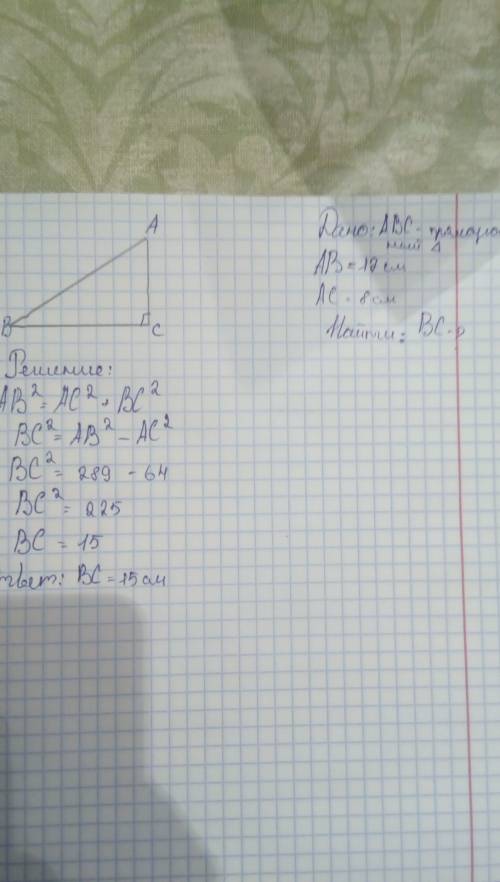 A
B
C
Дано: ABC - прямоуго
ный Δ
AB = 17 см
AC - 8 см
Найти: BC - ?
Решение:
AB² = AC² + BC²
BC² = AB² - AC²
BC² = 289 - 64
BC² = 225
BC = 15
твет: BC = 15 см